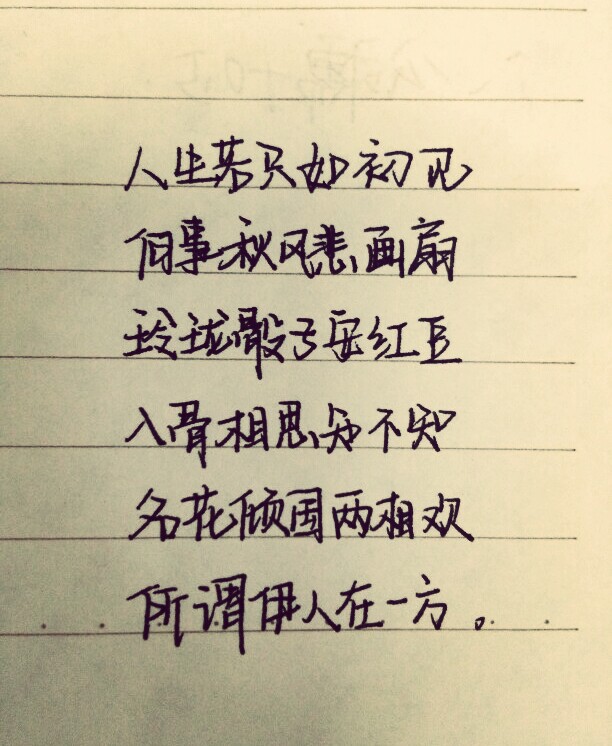 人生若只如初见
何事秋风悲画扇
玲珑骰子安红豆
入骨相思知不知
名花倾国两相欢
所谓伊人在一方。